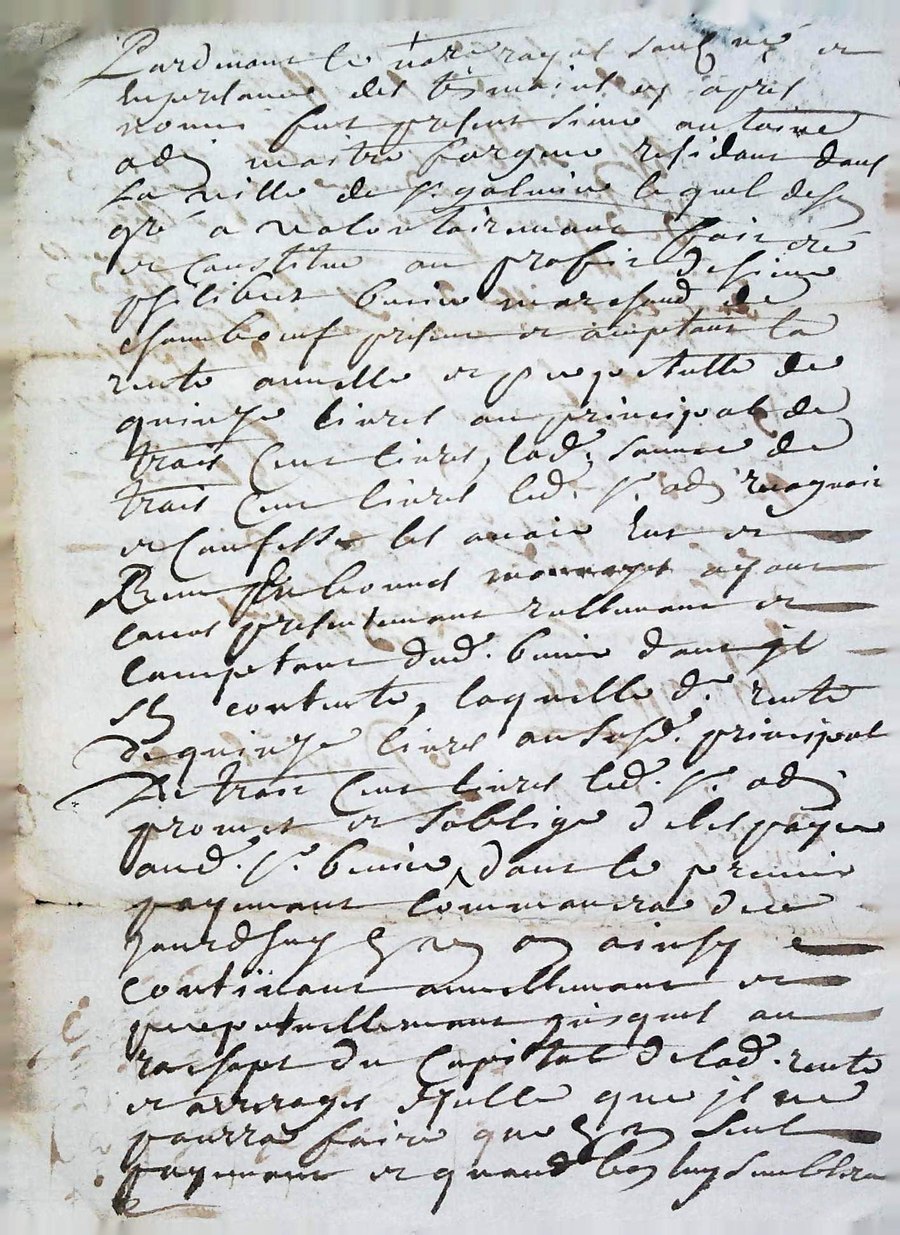 Pardevant le no.re royal soubz né et
en presence des tesmoins cy apres
nommes fut present sieur antoine
odi maitre forgeur residant dans
la ville de s.t galmier lequel de son
gré a volontairemant fait créé
et constitue au profit de sieur
philibert bunier marchand de
chambœuf present et acceptant la
rente annuelle et perpetuelle de
quinze livres au principal de
trois cent livres, lad.e somme de
trois cent livres led. s.r odi recognoit
et confesse les avoir eut et
Receu en bonnes monnoyes ayant
cours presentemant reellemant et
comptant dud. bunier dont jl
se contente, laquelle d.e rente
de quinze livres aususd. principal
De trois cent livres led. s.r odi
promet et soblige de les payer
aud. s.r bunier, dont le premier
payemant commancera de ce
jourdhuy en un an ainsy
continant annuellemant et
perpetuellemant jusques au
rachapt du Capital de lad. rente
et arrerages dycelle que jl ne
pourra faire que en un seul
payemant et quand bon luy semblera